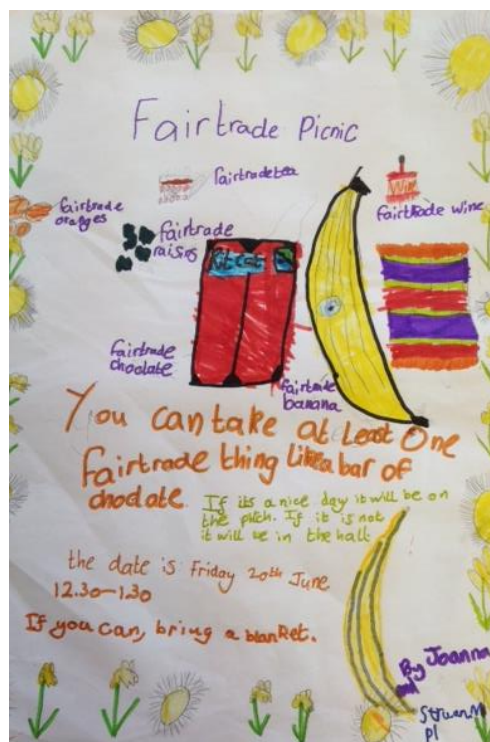 Fairtrade Picnic
fairtrade tea
Wine
fairtrade wine
fairtrade
oranges
fairtrade
raisins
Kit Cat
fairtrade
choolate
fairtrade
banana
You can take at Least One
Fairtrade thing Like a bar of
chodate.
If its a nice day it will be on
the pitch. If it is not
it will be in the hall
the date is Friday 20th June
12.30-1.30
If you can, bring a blanket.
By Joanna
and
Struan.M
P1